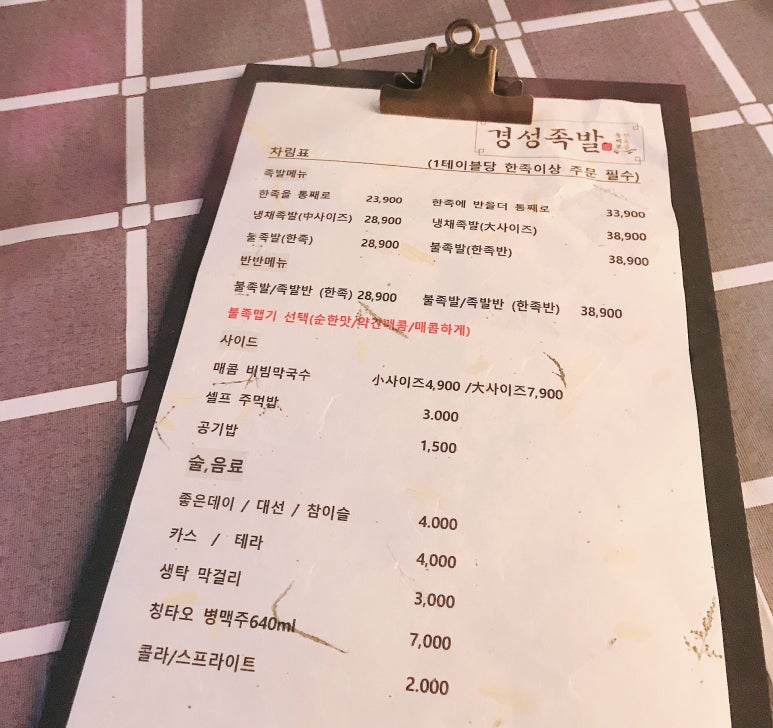 경성족발
차림표 (1테이블당 한족이상 주문 필수)
족발메뉴
한족을 통째로 23,900 한족에 반을더 통째로 33,900
냉채족발(中사이즈) 28,900 냉채족발(大사이즈) 38,900
불족발(한족) 28,900 불족발(한족반) 38,900
반반메뉴
불족발/족발반 (한족) 28,900 불족발/족발반 (한족반) 38,900
불족맵기 선택(순한맛/약간매콤/매콤하게)
사이드
매콤 비빔막국수 小사이즈4,900 /大사이즈7,900
셀프 주먹밥 3.000
공기밥 1,500
술,음료
좋은데이 / 대선 / 참이슬 4.000
카스 / 테라 4,000
생탁 막걸리 3,000
칭타오 병맥주640ml 7,000
콜라/스프라이트 2.000